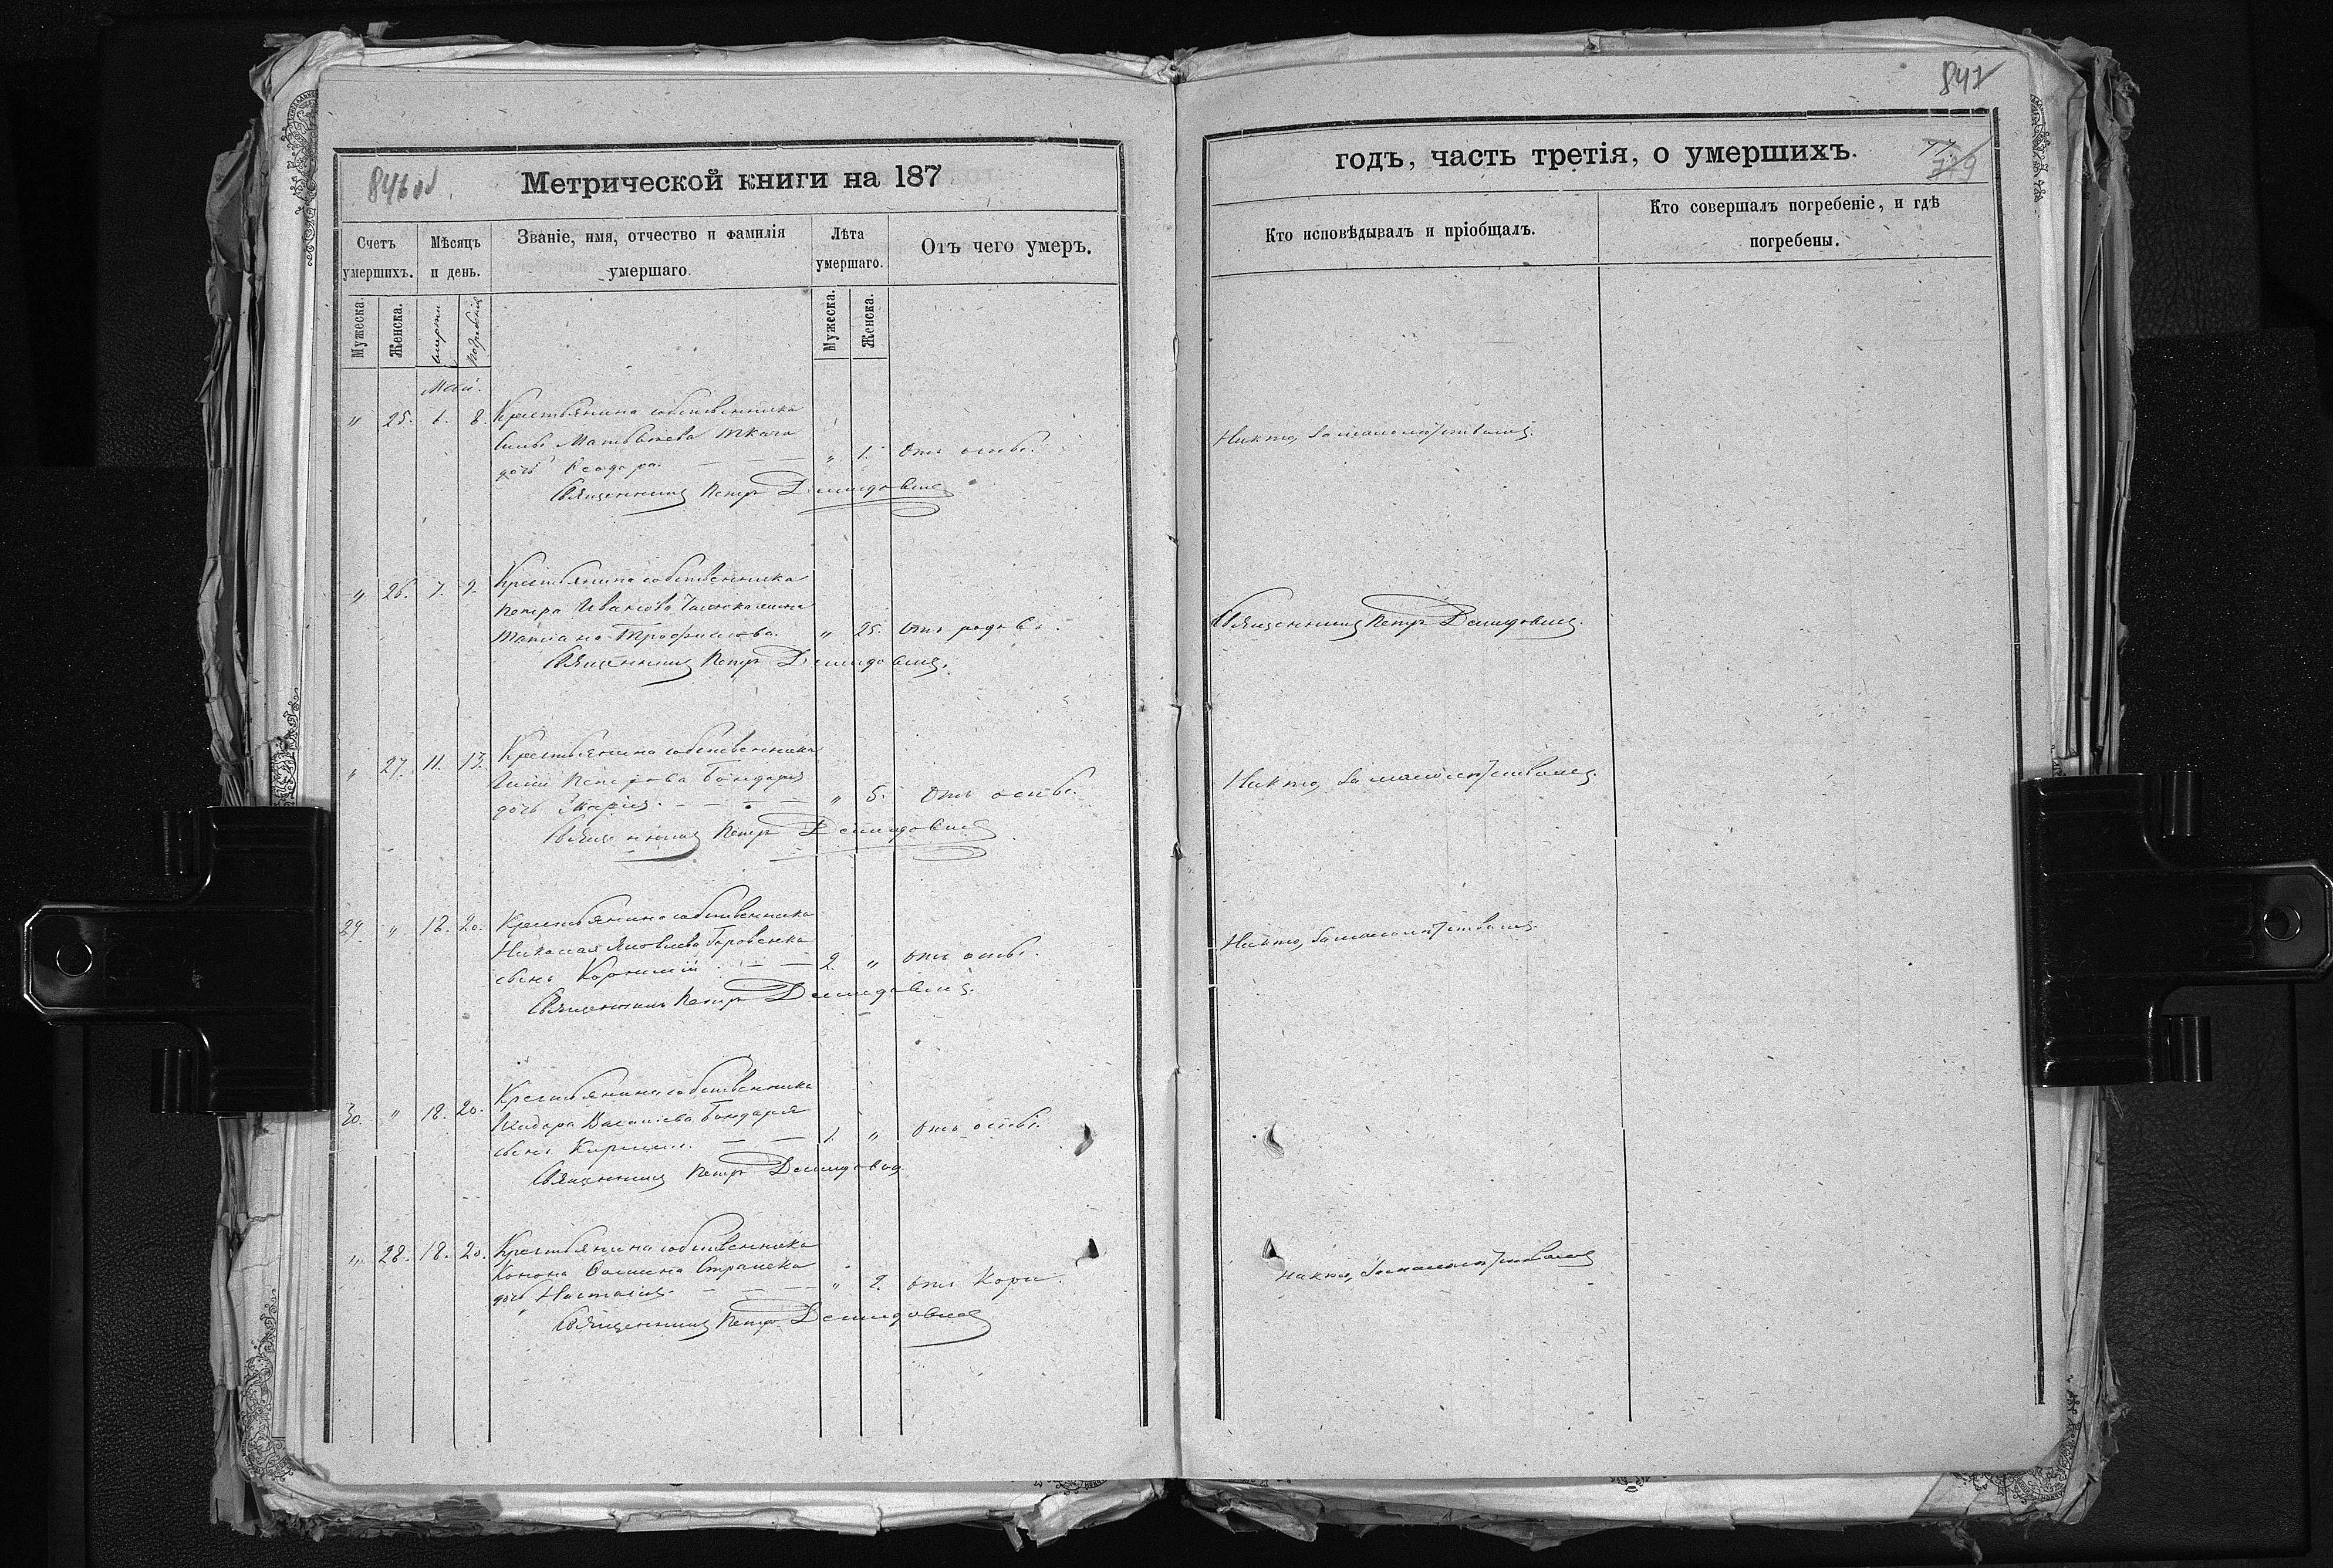 846об
Метрической книги на 187
Счетъ умершихъ.
Мѣсяцъ и день.
Званіе, имя, отчество и фамилія умершаго.
Лѣта умершаго.
Отъ чего умеръ.
Мужеска.
Женска.
смерти
погребенія
Мужеска.
Женска.
Май.
" 25. 6. 8. Крестьянина собственника
Матвѣева Ткача
дочь " 1. Отъ оспы.
Священникъ Петръ Демидовичъ
" 26. 7. 9. Крестьянина собственника
Петра Иванова
Татіана Трофимова. " 25. Отъ родовъ.
Священникъ Петръ Демидовичъ.
" 27. 11. 13. Крестьянина собственника
Петрова Бондаря
дочь Марія. " 5. Отъ оспы.
Священникъ Петръ Демидовичъ
29. " 18. 20. Крестьянина собственника
Николая Яковлева
сынъ Корнилій 2. " отъ оспы.
Священникъ Петръ Демидовичъ.
30. " 18. 20. Крестьянина собственника
Бондаря
сынъ 1. " Отъ оспы.
Священникъ Петръ Демидовичъ
" 28. 18. 20. Крестьянина собственника
Конона
дочь Наталія. " 2. отъ Кори.
Священникъ Петръ Демидовичъ
847
годъ, часть третія, о умершихъ.
Кто исповѣдывалъ и пріобщалъ.
Кто совершалъ погребеніе, и гдѣ погребены.
Никто, за малолѣтствомъ.
Священникъ Петръ Демидовичъ.
Никто, за малолѣтствомъ.
Никто, за малолѣтствомъ.
Никто, за малолѣтствомъ